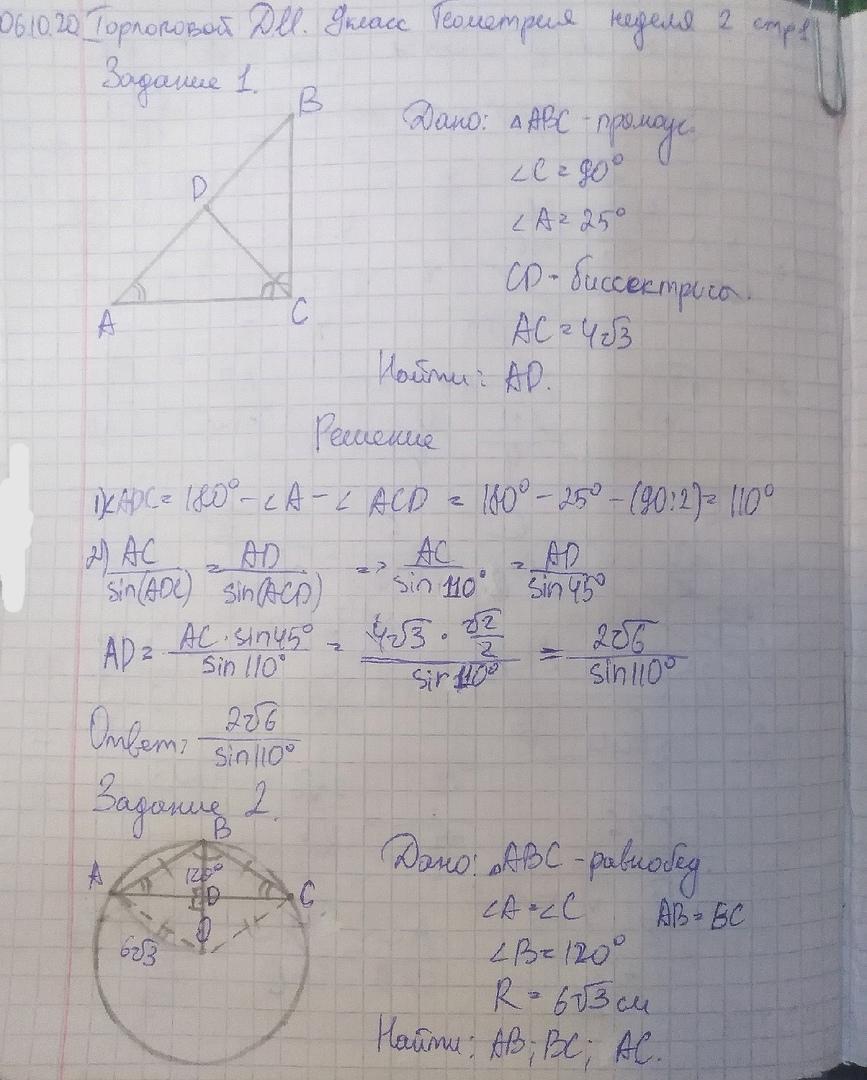 06.10.20 Торлоповой Д.И. 9 класс Геометрия неделя 2 стр 1
Задание 1.
B
D
A
C
Дано: △ABC - прямоуг.
∠C = 90°
∠A = 25°
CD - биссектриса.
AC = 4√3
Найти: AD.
Решение
1) ∠ADC = 180° - ∠A - ∠ACD = 180° - 25° - (90:2) = 110°
2) AC/sin(ADC) = AD/sin(ACD) => AC/sin 110° = AD/sin 45°
AD = AC · sin 45°/sin 110° = 4√3 · √2/2/sin 110° = 2√6/sin 110°
Ответ: 2√6/sin 110°
Задание 2.
B
A
120°
D
C
O
6√3
Дано: △ABC - равнобед
∠A = ∠C AB = BC
∠B = 120°
R = 6√3 см
Найти: AB; BC; AC.